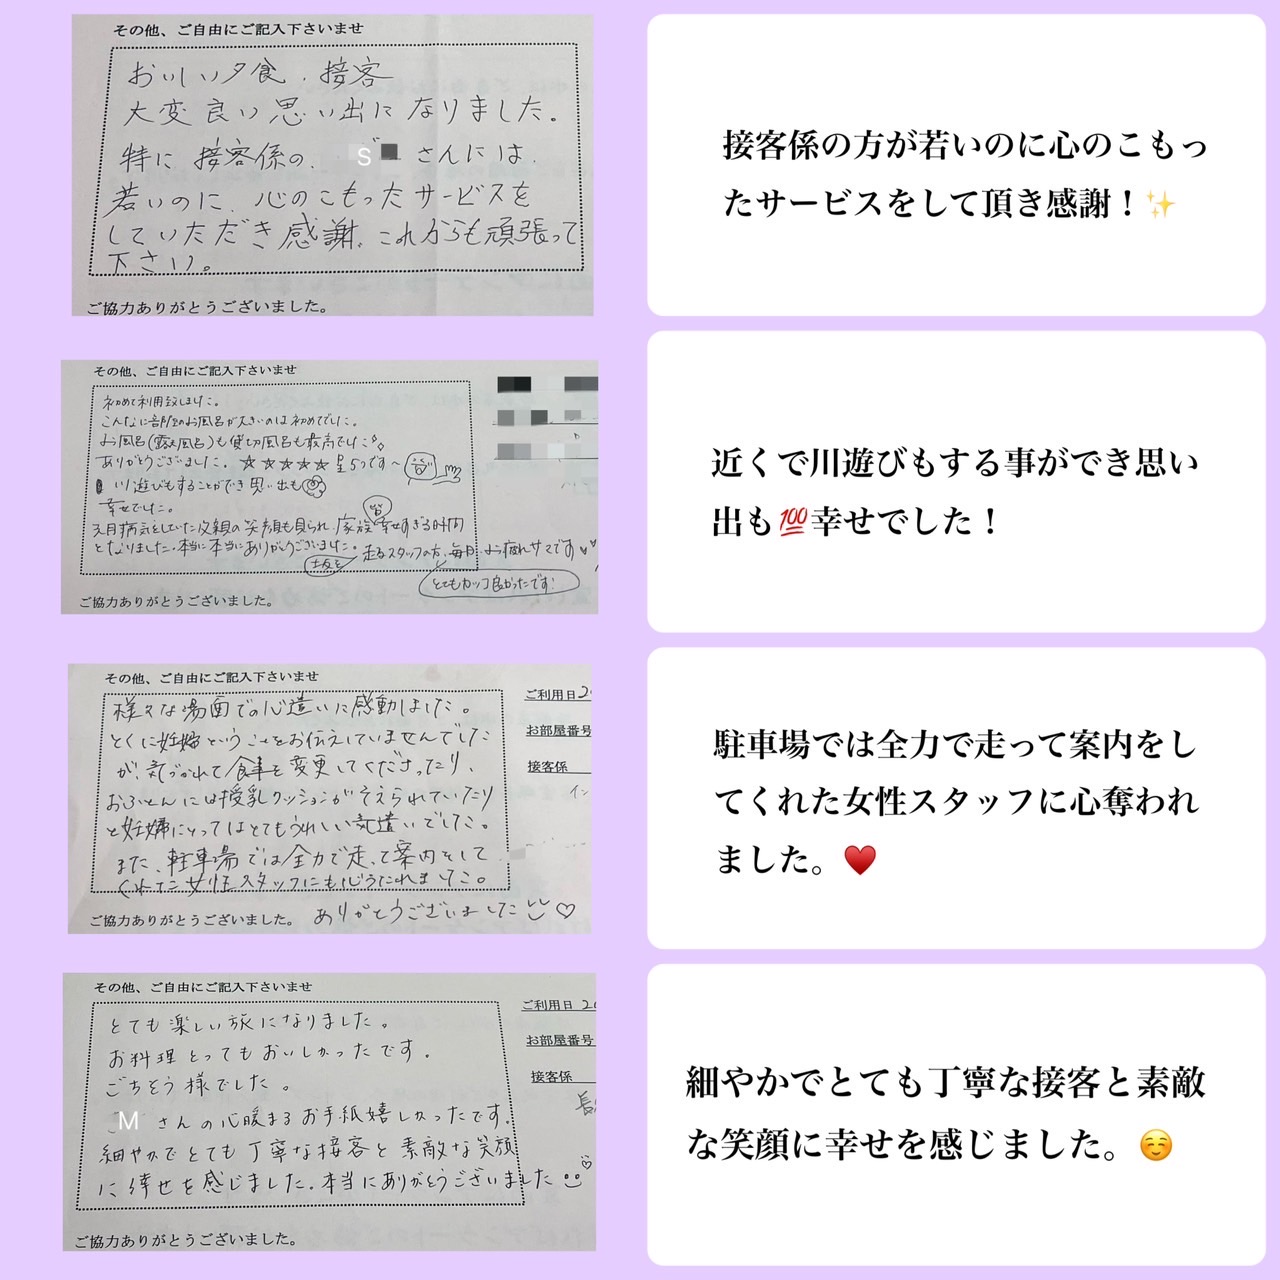 その他、ご自由にご記入下さいませ
おいしい夕食、接客
大変良い思い出になりました。
特に接客係の、S さんには、
若いのに、心のこもったサービスを
していただき感謝、これからも頑張って
下さい。
ご協力ありがとうございました。
接客係の方が若いのに心のこもっ
たサービスをして頂き感謝！✨
その他、ご自由にご記入下さいませ
初めて利用致しました。
こんなに部屋のお風呂が大きいのは初めてでした。
お風呂(露天風呂)も貸切風呂も最高でした
ありがとうございました。☆☆☆☆☆星5つです〜
川遊びもすることができ思い出も
幸せでした。
病気をしていた父親の笑顔も見られ、家族皆幸せすぎる時間
となりました。本当に本当にありがとうございました。
坂を走るスタッフの方、毎日お疲れサマです
とてもカッコ良かったです!
ご協力ありがとうございました。
近くで川遊びもする事ができ思い
出も💯幸せでした！
その他、ご自由にご記入下さいませ
様々な場面での心遣いに感動しました。
とくに妊婦ということをお伝えしていませんでした
が、気づかれて食事を変更してくださったり、
おふとんには授乳クッションがそえられていたり
と妊婦にとってはとてもうれしい気遣いでした。
また、駐車場では全力で走って案内をして
くれた女性スタッフにも心うたれました。
ありがとうございました♡
ご協力ありがとうございました。
ご利用日2
お部屋番号
接客係
イン
駐車場では全力で走って案内をし
てくれた女性スタッフに心奪われ
ました。♥️
その他、ご自由にご記入下さいませ
とても楽しい旅になりました。
お料理とってもおいしかったです。
ごちそう様でした。
M さんの心暖まるお手紙嬉しかったです。
細やかでとても丁寧な接客と素敵な笑顔
に幸せを感じました。本当にありがとうございました
ご協力ありがとうございました。
ご利用日 20
お部屋番号
接客係
細やかでとても丁寧な接客と素敵
な笑顔に幸せを感じました。☺️